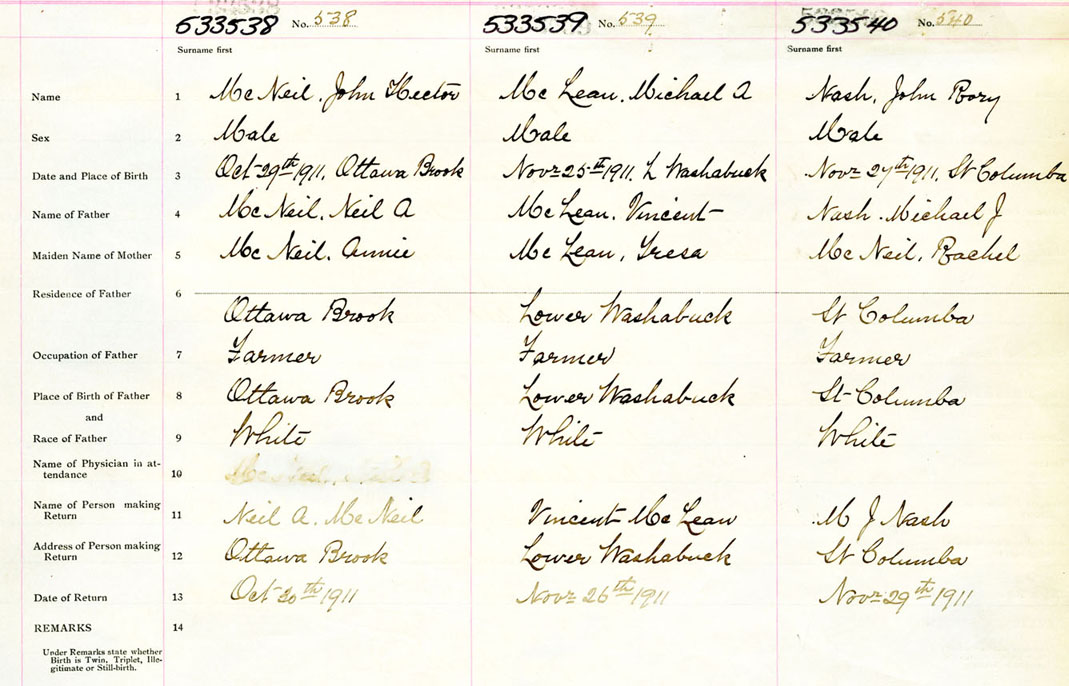 533538 No. 538 533539 No. 539 533540 No. 540
Surname first Surname first Surname first
Name 1 Mc Neil, John Hector Mc Lean, Michael A Nash, John Rory
Sex 2 Male Male Male
Date and Place of Birth 3 Oct 29th 1911, Ottawa Brook Novr 25th 1911, L Washabuck Novr 27th 1911, St Columba
Name of Father 4 Mc Neil, Neil A Mc Lean, Vincent Nash, Michael J
Maiden Name of Mother 5 Mc Neil, Annie Mc Lean, Tresa Mc Neil, Rachel
Residence of Father 6
Ottawa Brook Lower Washabuck St Columba
Occupation of Father 7 Farmer Farmer Farmer
Place of Birth of Father 8 Ottawa Brook Lower Washabuck St Columba
and
Race of Father 9 White White White
Name of Physician in at-
tendance 10
Name of Person making
Return 11 Neil A. Mc Neil Vincent Mc Lean M J Nash
Address of Person making
Return 12 Ottawa Brook Lower Washabuck St Columba
Date of Return 13 Oct 30th 1911 Novr 26th 1911 Novr 29th 1911
REMARKS 14
Under Remarks state whether
Birth is Twin, Triplet, Ille-
gitimate or Still-birth.